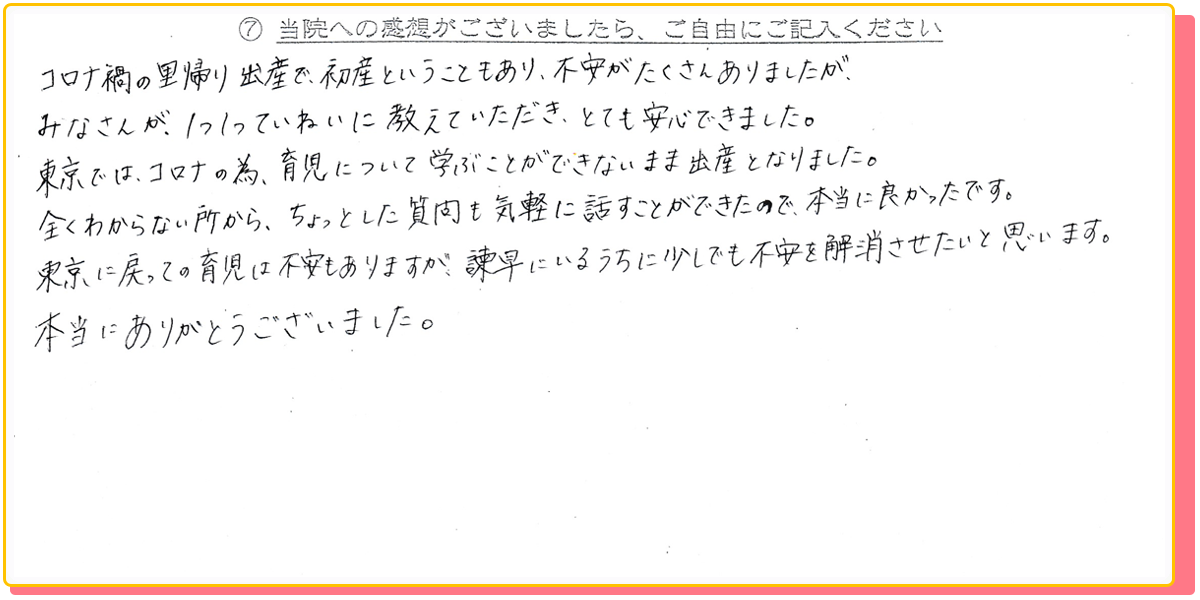 ⑦ 当院への感想がございましたら、ご自由にご記入ください
コロナ禍の里帰り出産で、初産ということもあり、不安がたくさんありましたが、
みなさんが、1つ1つていねいに教えていただき、とても安心できました。
東京では、コロナの為、育児について学ぶことができないまま出産となりました。
全くわからない所から、ちょっとした質問も気軽に話すことができたので、本当に良かったです。
東京に戻っての育児は不安もありますが、諫早にいるうちに少しでも不安を解消させたいと思います。
本当にありがとうございました。